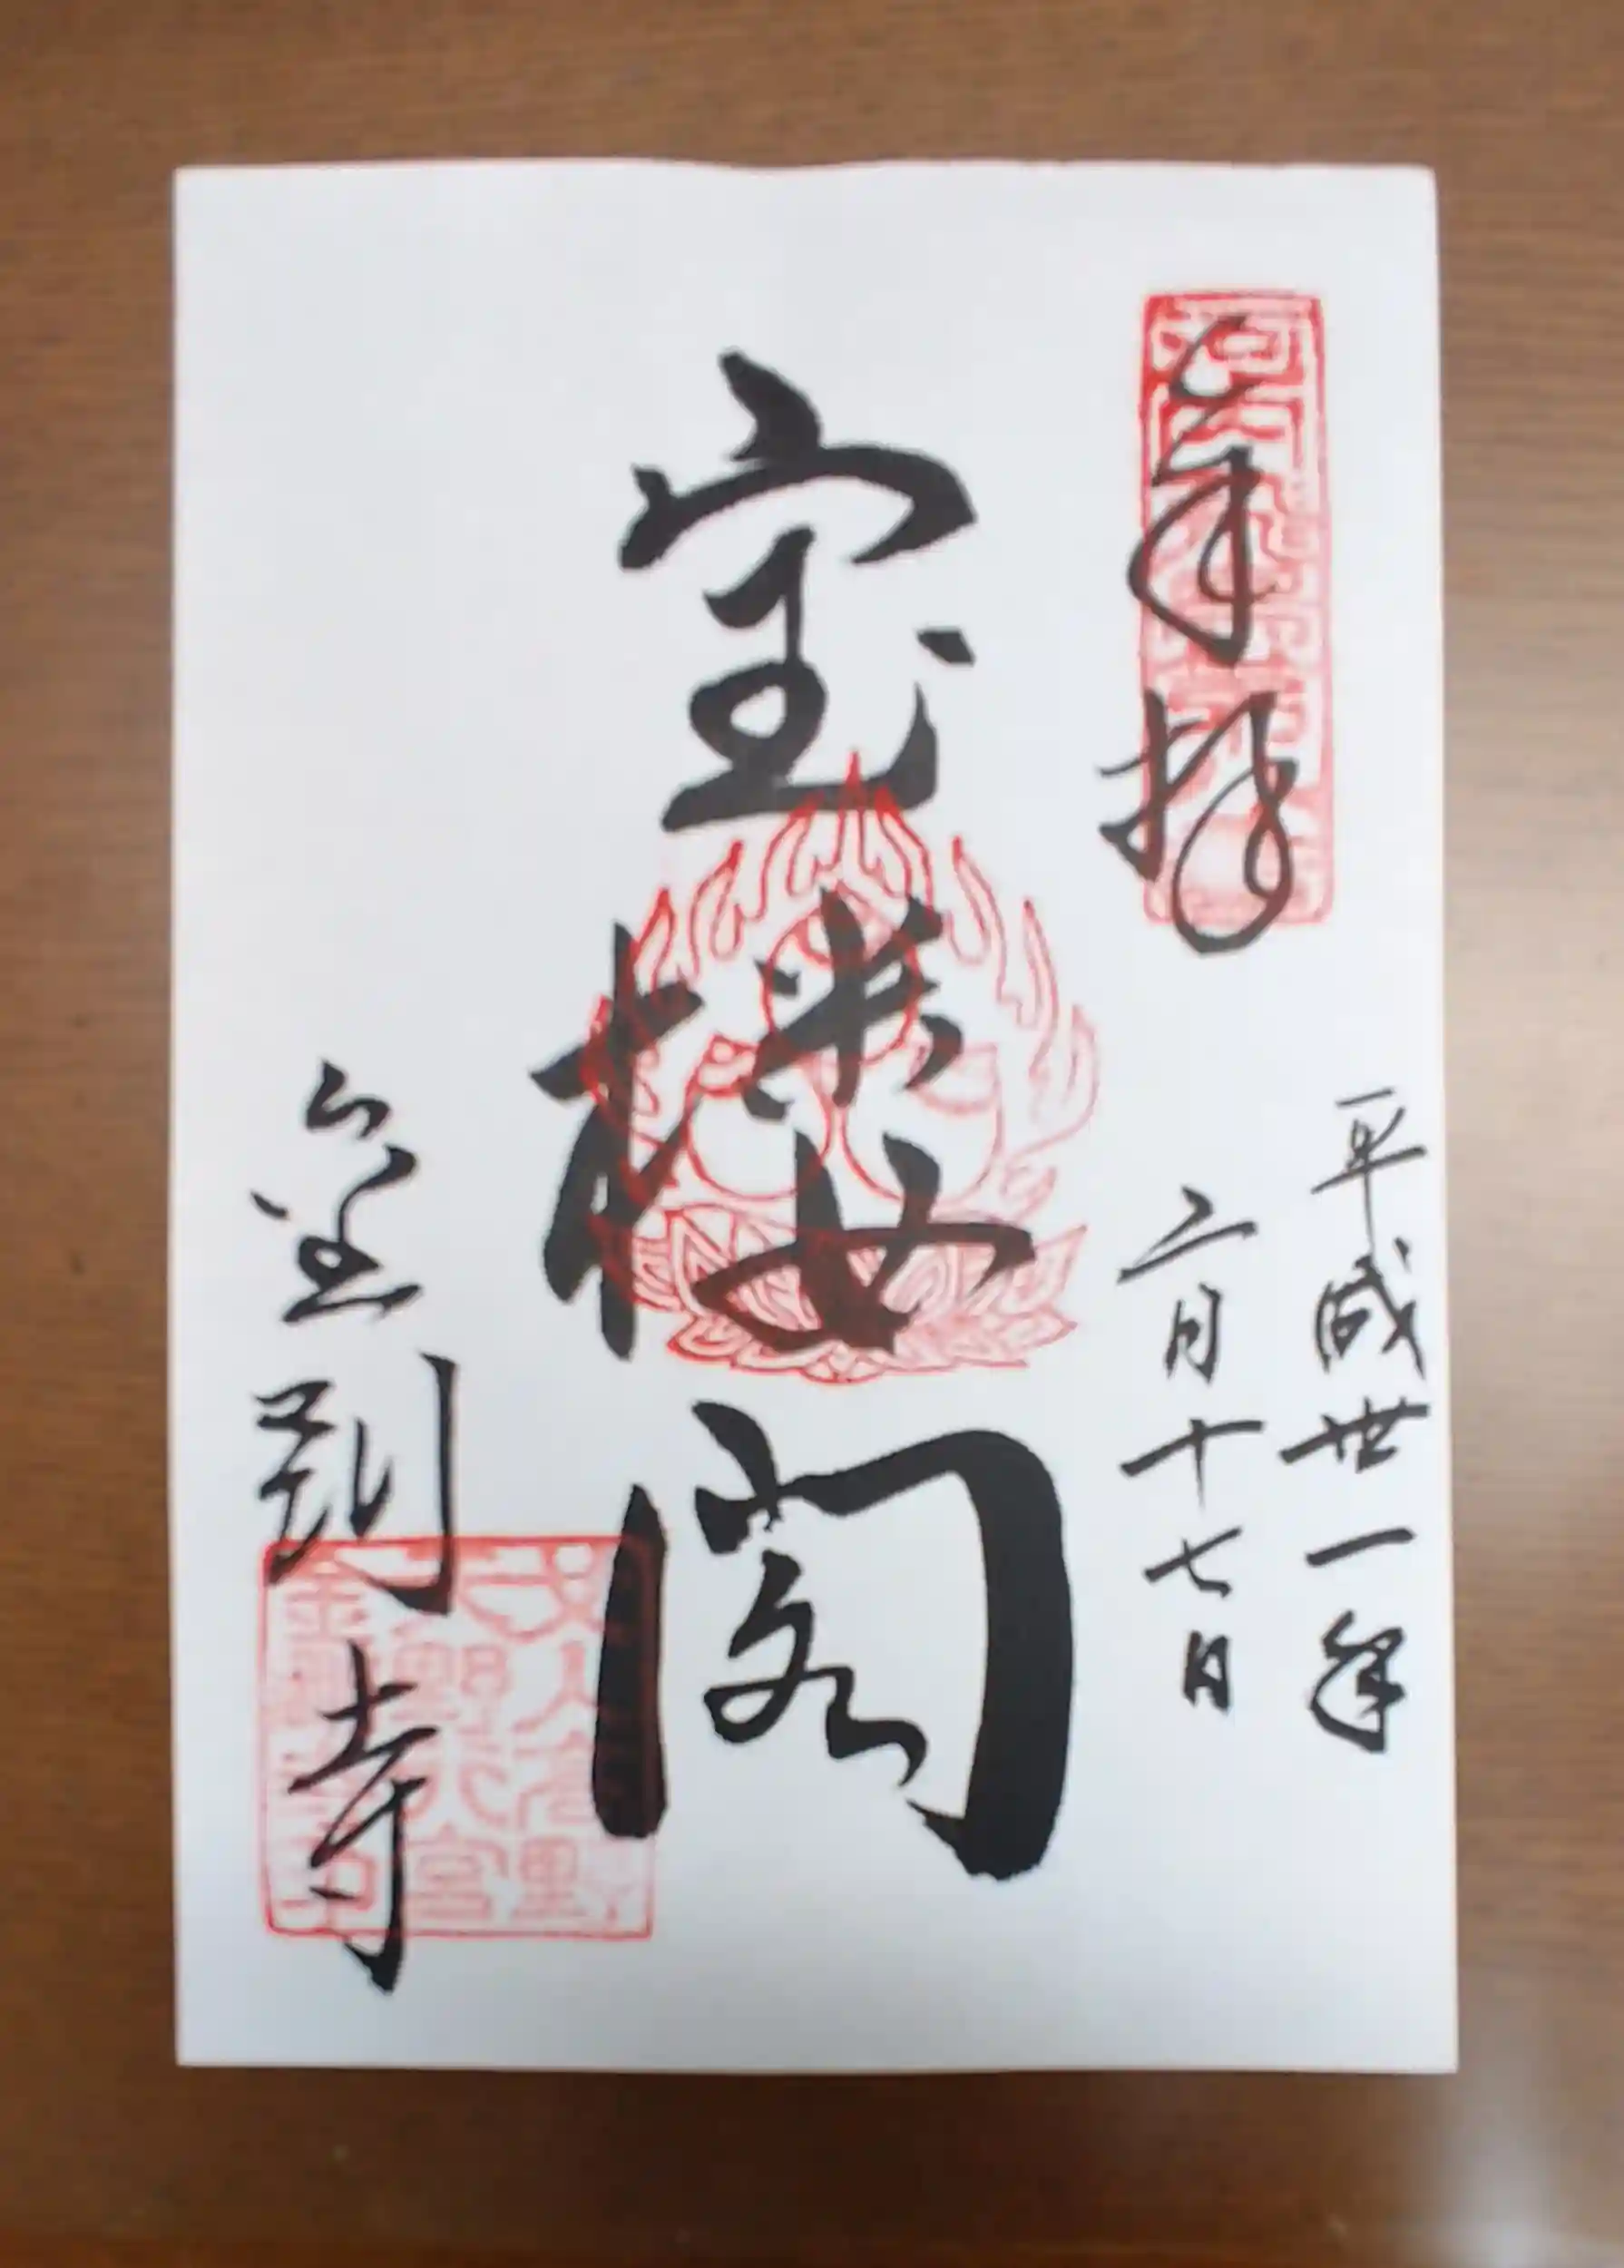 奉拝
平成丗一年
二月十七日
宝楼閣
金剛寺